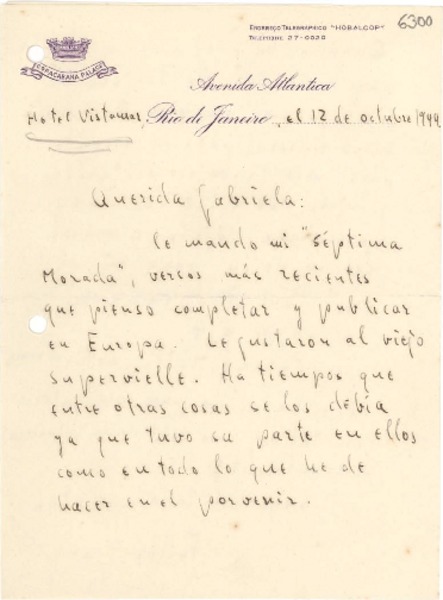 6300
ENDEREÇO TELEGRAPHICO "HOBALCOP"
TELEPHONE 27-0020
COPACABANA PALACE
Avenida Atlantica
Hotel Vistamar, Rio de Janeiro, el 12 de octubre 1944
Querida Gabriela:
le mando mi "séptima
Morada", versos más recientes
que pienso completar y publicar
en Europa. Le gustaron al viejo
Supervielle. Ha tiempos que
entre otras cosas se los debía
ya que tuvo su parte en ellos
como en todo lo que he de
hacer en el porvenir.